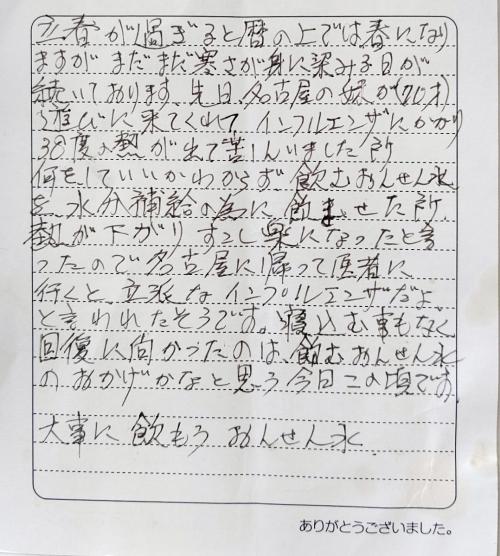 立春が過ぎると暦の上では春になり
ますが まだまだ寒さが身に染みる日が
続いております。先日、名古屋の妹が(70才)
遊びに来てくれて、インフルエンザにかかり
38度の熱が出て苦しんいました所
何をしていいかわからず 飲むおんせん水
を 水分補給の為に 飲ませた所、
熱が下がり すこし楽になったと言
ったので 名古屋に帰って医者に
行くと、立派なインフルエンザだよ
と言われたそうです。寝込む事もなく
回復に向かったのは、飲むおんせん水
のおかげかなと思う今日この頃です。
大事に 飲もう おんせん水
ありがとうございました。